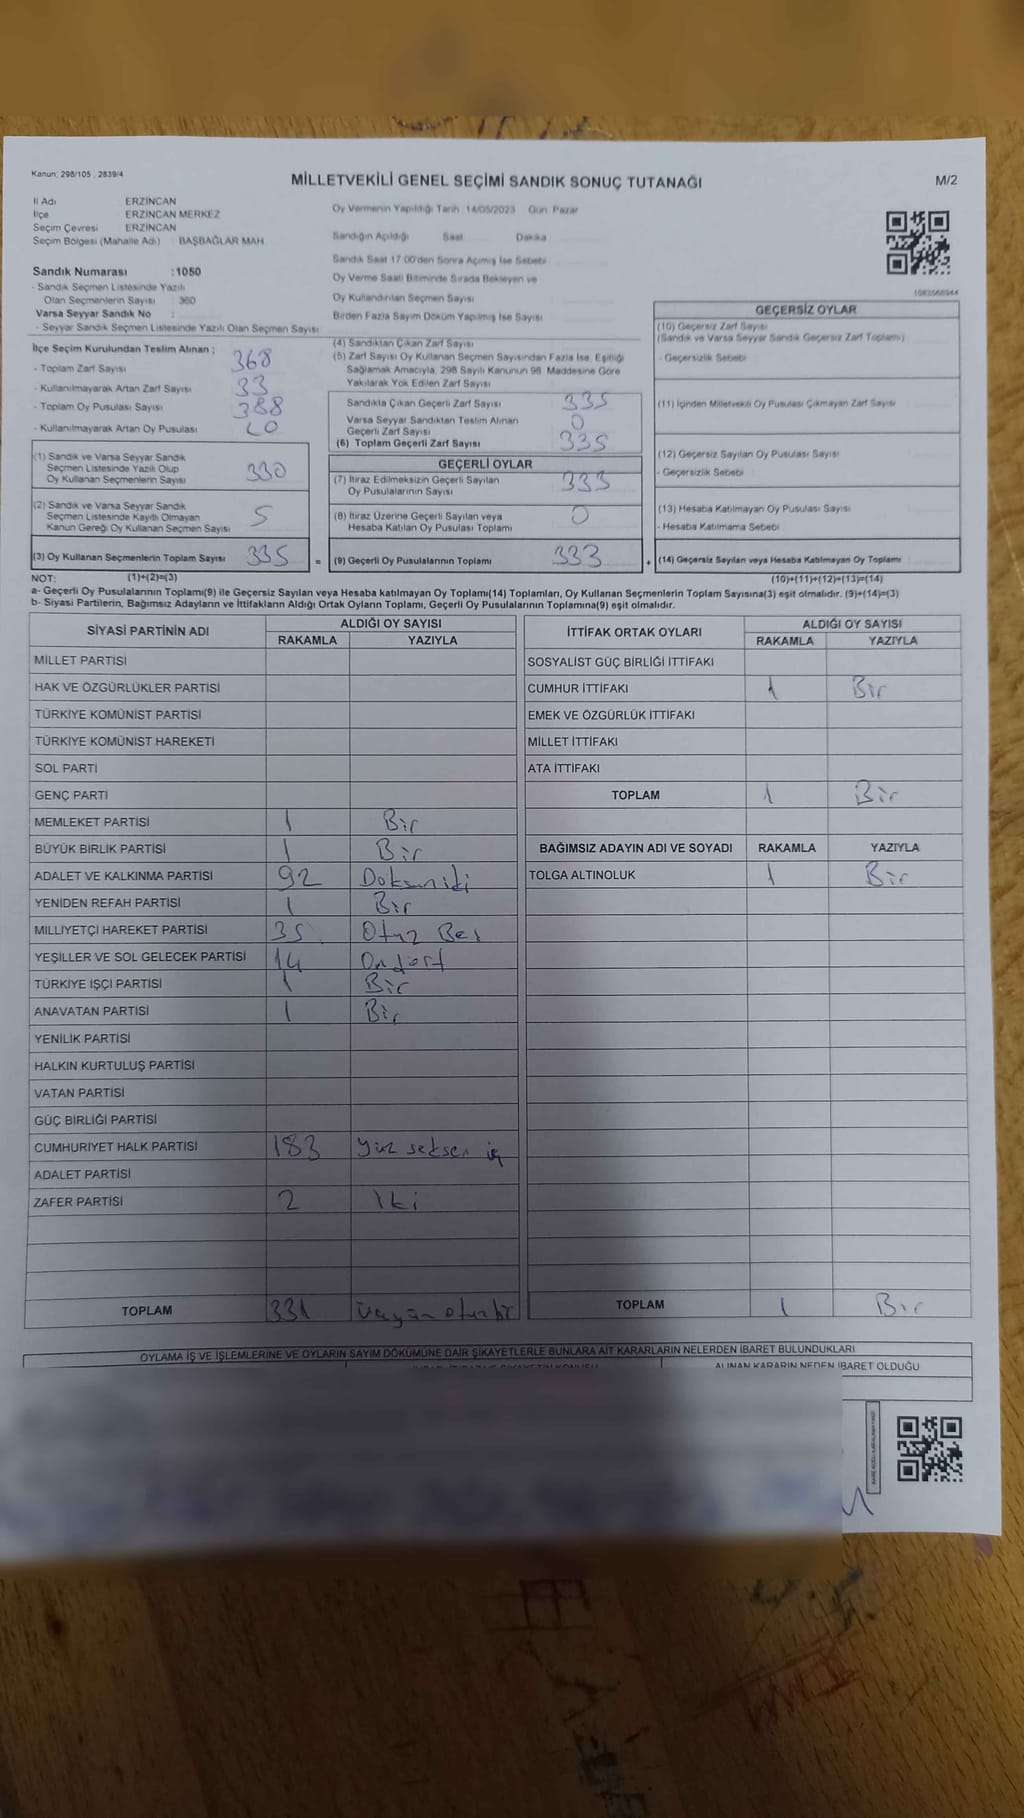 Kanun: 298/105 , 2839/4
MİLLETVEKİLİ GENEL SEÇİMİ SANDIK SONUÇ TUTANAĞI
M/2
İl Adı ERZİNCAN
İlçe ERZİNCAN MERKEZ
Seçim Çevresi ERZİNCAN
Seçim Bölgesi (Mahalle Adı) BAŞBAĞLAR MAH.
Sandık Numarası :1050
- Sandık Seçmen Listesinde Yazılı
Olan Seçmenlerin Sayısı : 360
Varsa Seyyar Sandık No :
- Seyyar Sandık Seçmen Listesinde Yazılı Olan Seçmen Sayısı
Oy Vermenin Yapıldığı Tarih 14/05/2023 Gün: Pazar
Sandığın Açıldığı Saat Dakika
Sandık Saat 17.00'den Sonra Açımış İse Sebebi
Oy Verme Saati Bitiminde Sırada Bekleyen ve
Oy Kullandırılan Seçmen Sayısı
Birden Fazla Sayım Döküm Yapılmış İse Sayısı
İlçe Seçim Kurulundan Teslim Alınan ;
- Toplam Zarf Sayısı 368
- Kullanılmayarak Artan Zarf Sayısı 33
- Toplam Oy Pusulası Sayısı 388
- Kullanılmayarak Artan Oy Pusulası
(1) Sandık ve Varsa Seyyar Sandık
Seçmen Listesinde Yazılı Olup
Oy Kullanan Seçmenlerin Sayısı 330
(2) Sandık ve Varsa Seyyar Sandık
Seçmen Listesinde Kayıtlı Olmayan
Kanun Gereği Oy Kullanan Seçmen Sayısı 5
(3) Oy Kullanan Seçmenlerin Toplam Sayısı 335 =
(4) Sandıktan Çıkan Zarf Sayısı
(5) Zarf Sayısı Oy Kullanan Seçmen Sayısından Fazla İse, Eşitliği
Sağlamak Amacıyla, 298 Sayılı Kanunun 98. Maddesine Göre
Yakılarak Yok Edilen Zarf Sayısı
Sandıkta Çıkan Geçerli Zarf Sayısı 335
Varsa Seyyar Sandıktan Teslim Alınan
Geçerli Zarf Sayısı 0
(6) Toplam Geçerli Zarf Sayısı 335
GEÇERLİ OYLAR
(7) İtiraz Edilmeksizin Geçerli Sayılan
Oy Pusulalarının Sayısı 333
(8) İtiraz Üzerine Geçerli Sayılan veya
Hesaba Katılan Oy Pusulası Toplamı 0
(9) Geçerli Oy Pusulalarının Toplamı 333 +
1083568944
GEÇERSİZ OYLAR
(10) Geçersiz Zarf Sayısı
(Sandık ve Varsa Seyyar Sandık Geçersiz Zarf Toplamı)
- Geçersizlik Sebebi
(11) İçinden Milletvekili Oy Pusulası Çıkmayan Zarf Sayısı
(12) Geçersiz Sayılan Oy Pusulası Sayısı
- Geçersizlik Sebebi
(13) Hesaba Katılmayan Oy Pusulası Sayısı
- Hesaba Katılmama Sebebi
(14) Geçersiz Sayılan veya Hesaba Katılmayan Oy Toplamı
NOT: (1)+(2)=(3) (10)+(11)+(12)+(13)=(14)
a- Geçerli Oy Pusulalarının Toplamı(9) ile Geçersiz Sayılan veya Hesaba katılmayan Oy Toplamı(14) Toplamları, Oy Kullanan Seçmenlerin Toplam Sayısına(3) eşit olmalıdır. (9)+(14)=(3)
b- Siyasi Partilerin, Bağımsız Adayların ve İttifakların Aldığı Ortak Oyların Toplamı, Geçerli Oy Pusulalarının Toplamına(9) eşit olmalıdır.
SİYASİ PARTİNİN ADI ALDIĞI OY SAYISI
RAKAMLA YAZIYLA
MİLLET PARTİSİ
HAK VE ÖZGÜRLÜKLER PARTİSİ
TÜRKİYE KOMÜNİST PARTİSİ
TÜRKİYE KOMÜNİST HAREKETİ
SOL PARTİ
GENÇ PARTİ
MEMLEKET PARTİSİ 1 Bir
BÜYÜK BİRLİK PARTİSİ 1 Bir
ADALET VE KALKINMA PARTİSİ 92 Doksaniki
YENİDEN REFAH PARTİSİ 1 Bir
MİLLİYETÇİ HAREKET PARTİSİ 35 Otuz Beş
YEŞİLLER VE SOL GELECEK PARTİSİ 14 Ondört
TÜRKİYE İŞÇİ PARTİSİ 1 Bir
ANAVATAN PARTİSİ 1 Bir
YENİLİK PARTİSİ
HALKIN KURTULUŞ PARTİSİ
VATAN PARTİSİ
GÜÇ BİRLİĞİ PARTİSİ
CUMHURİYET HALK PARTİSİ 183 Yüz seksen üç
ADALET PARTİSİ
ZAFER PARTİSİ 2 İki
TOPLAM 331
İTTİFAK ORTAK OYLARI ALDIĞI OY SAYISI
RAKAMLA YAZIYLA
SOSYALİST GÜÇ BİRLİĞİ İTTİFAKI
CUMHUR İTTİFAKI 1 Bir
EMEK VE ÖZGÜRLÜK İTTİFAKI
MİLLET İTTİFAKI
ATA İTTİFAKI
TOPLAM 1 Bir
BAĞIMSIZ ADAYIN ADI VE SOYADI RAKAMLA YAZIYLA
TOLGA ALTINOLUK 1 Bir
TOPLAM 1 Bir
OYLAMA İŞ VE İŞLEMLERİNE VE OYLARIN SAYIM DÖKÜMÜNE DAİR ŞİKAYETLERLE BUNLARA AİT KARARLARIN NELERDEN İBARET BULUNDUKLARI
ALINAN KARARIN NEDEN İBARET OLDUĞU